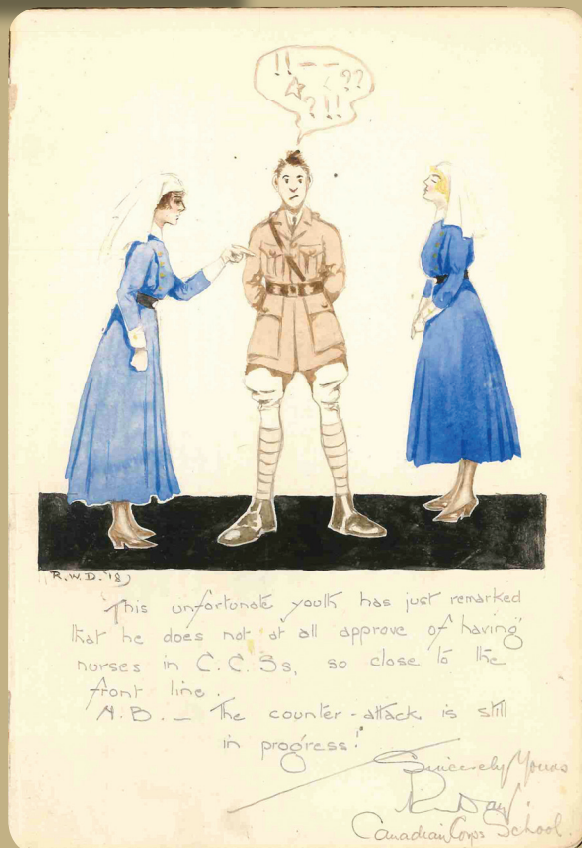 !! — —
? ??
? !!
R.W.D. '18
This unfortunate youth has just remarked
that he does not at all approve of having
nurses in C.C.Ss, so close to the
front line.
N.B. — The counter-attack is still
in progress!
Sincerely Yours
Canadian Corps School.